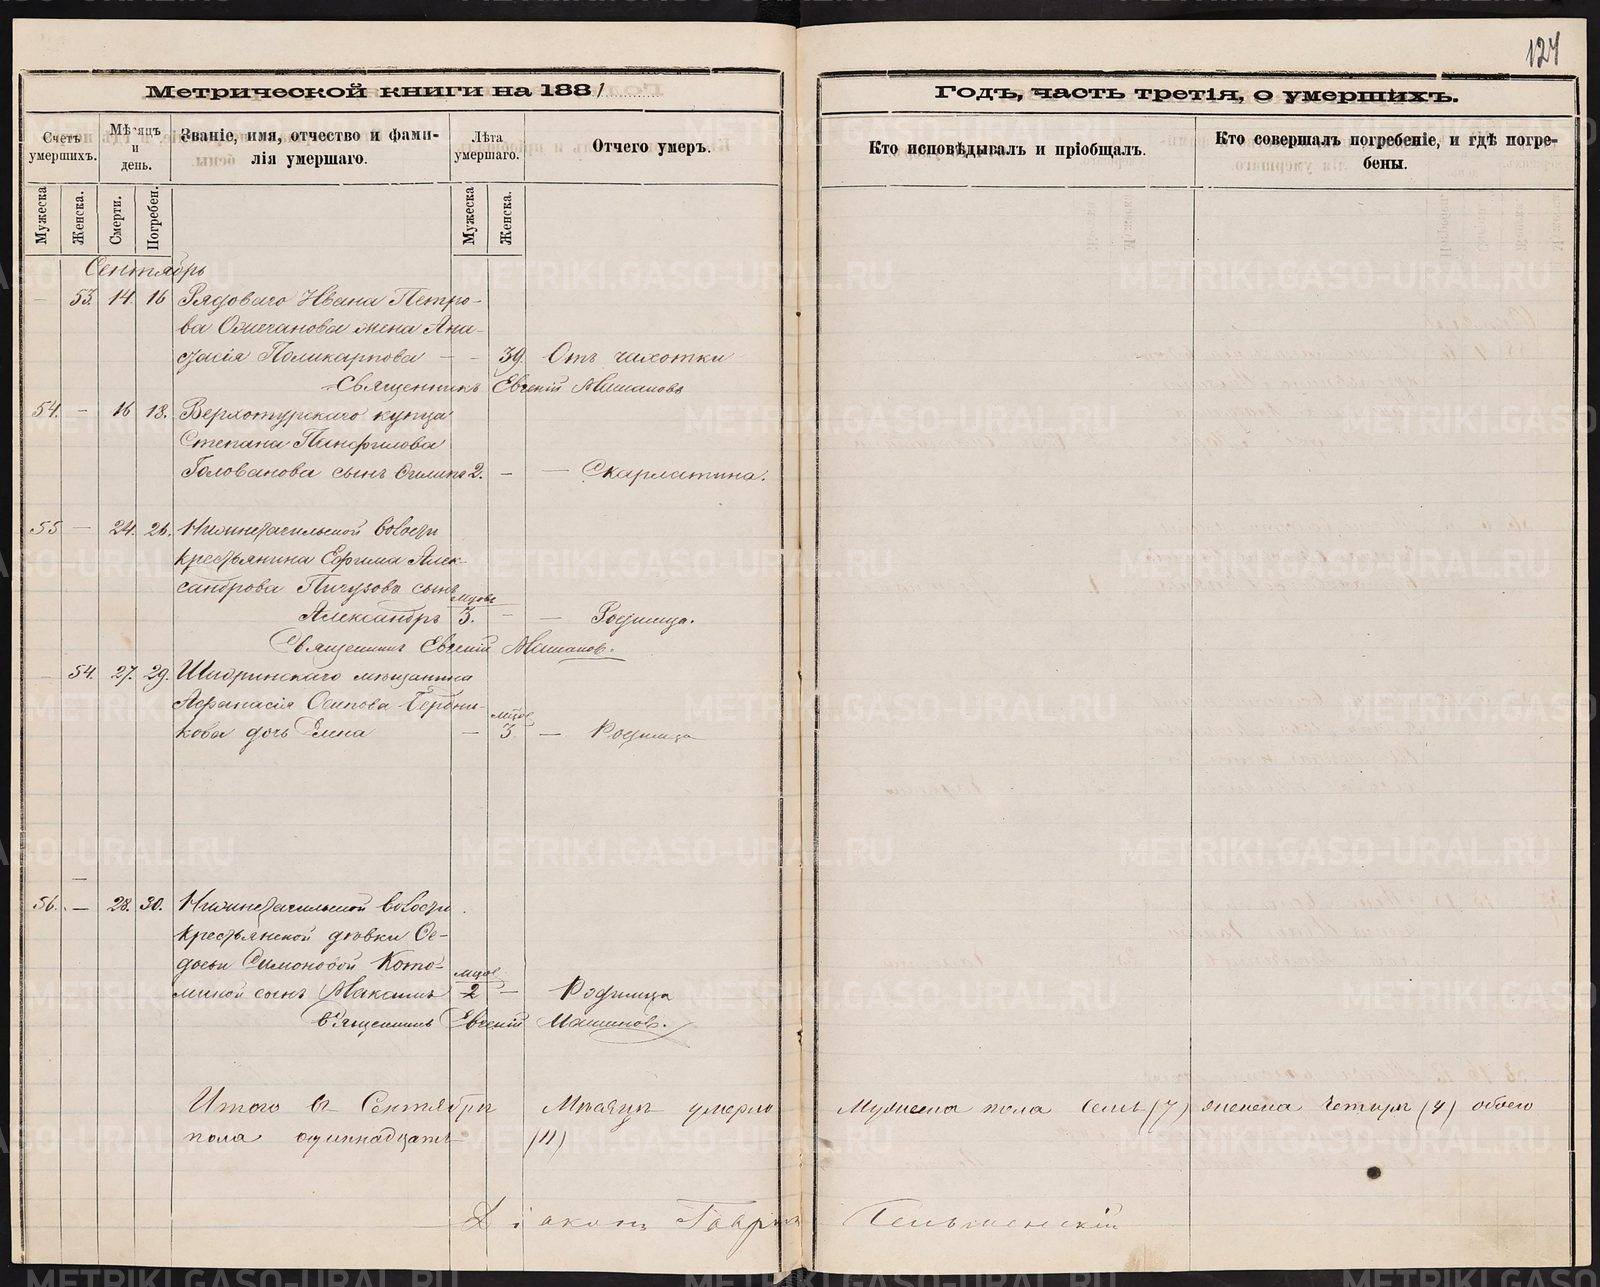 124
Метрической книги на 1881
Годъ, часть третія, о умершихъ.
Счетъ умершихъ.
Мѣсяцъ и день.
Званіе, имя, отчество и фами-
лія умершаго.
Лѣта умершаго.
Отчего умеръ.
Кто исповѣдывалъ и пріобщалъ.
Кто совершалъ погребеніе, и гдѣ погре-
бены.
Мужеска
Женска.
Смерти.
Погребен.
Мужеска
Женска.
Сентябрь
— 53. 14. 16 Рядоваго Ивана Петро-
ва жена Ана-
стасія Поликарпова — - 39. Отъ чахотки
Священникъ Евгеній
54. — 16 18. Верхотурскаго купца
Степана Панфилова
Голованова сынъ Филипъ 2. — — Скарлатина.
55 — 24. 26. Нижнетагильской волости
крестьянина Ефима Алек-
сандрова Пичугова сынъ
мцовъ
Александръ 3. — — Родимца.
Священникъ Евгеній
54. 27. 29. Шадринскаго мещанина
Афанасія Осипова
мцов
кова дочь Елена — 3 — Родимца
56. — 28. 30. Нижнетагильской волости
крестьянской дѣвки Ов-
досьи Симоновой Кото-
мцов
миной сынъ Максимъ 2 — Родимца
Священникъ Евгеній
Итого въ Сентябрѣ Мѣсяцѣ умерло Мужеска пола семь (7) женска четыре (4) обоего
пола одиннадцать (11)
Діаконъ Гавріилъ
METRIKI.GASO-URAL.RU